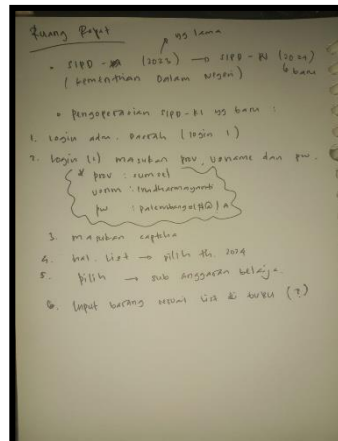 Ruang Rapat
yg lama
• SIPD - (2023) → SIPD - RI (2024)
(Kementrian Dalam Negeri) ↳ baru
• Pengoperasian SIPD-RI yg baru :
1. Login adm. Daerah (login 1)
2. Login (1) masukan prov, usname dan pw.
* prov : sumsel
usnm :
pw :
3. masukan captcha
4. hal. list → pilih th. 2024
5. pilih → sub anggaran belanja.
6. Input barang sesuai list di buku (?)